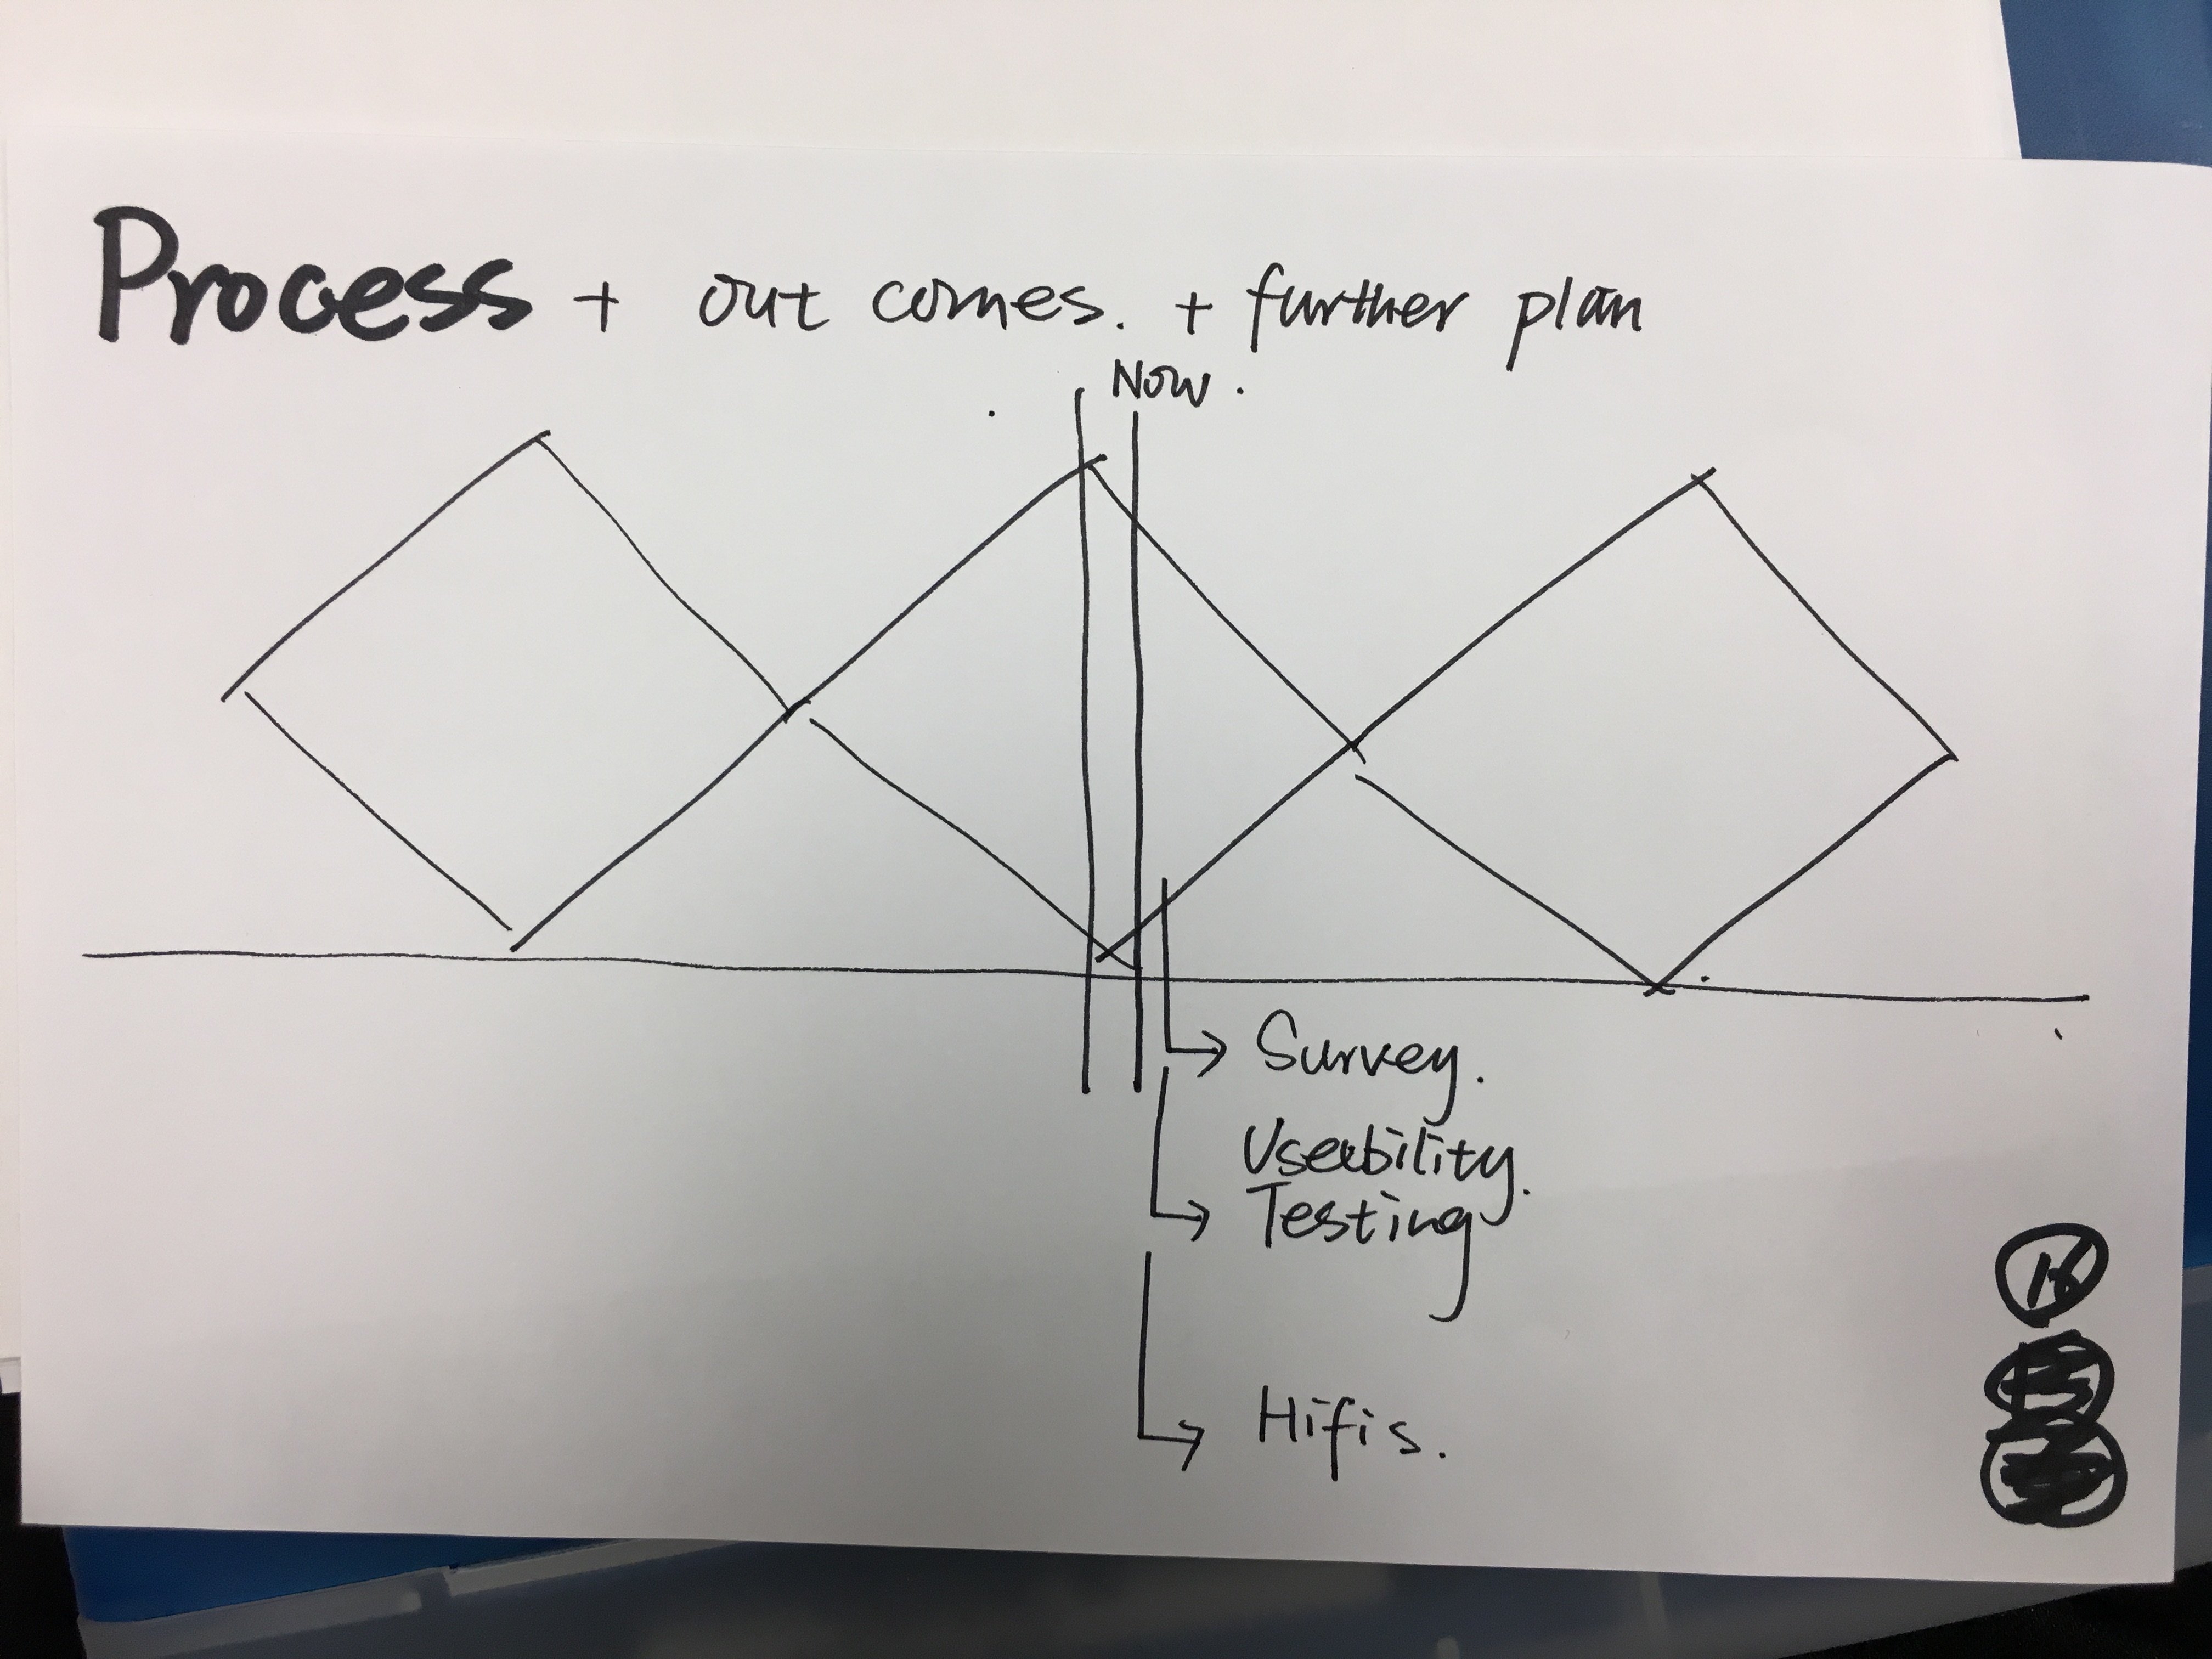 Process + out comes. + further plan
Now.
Survey.
Useability
Testing.
Hifis.